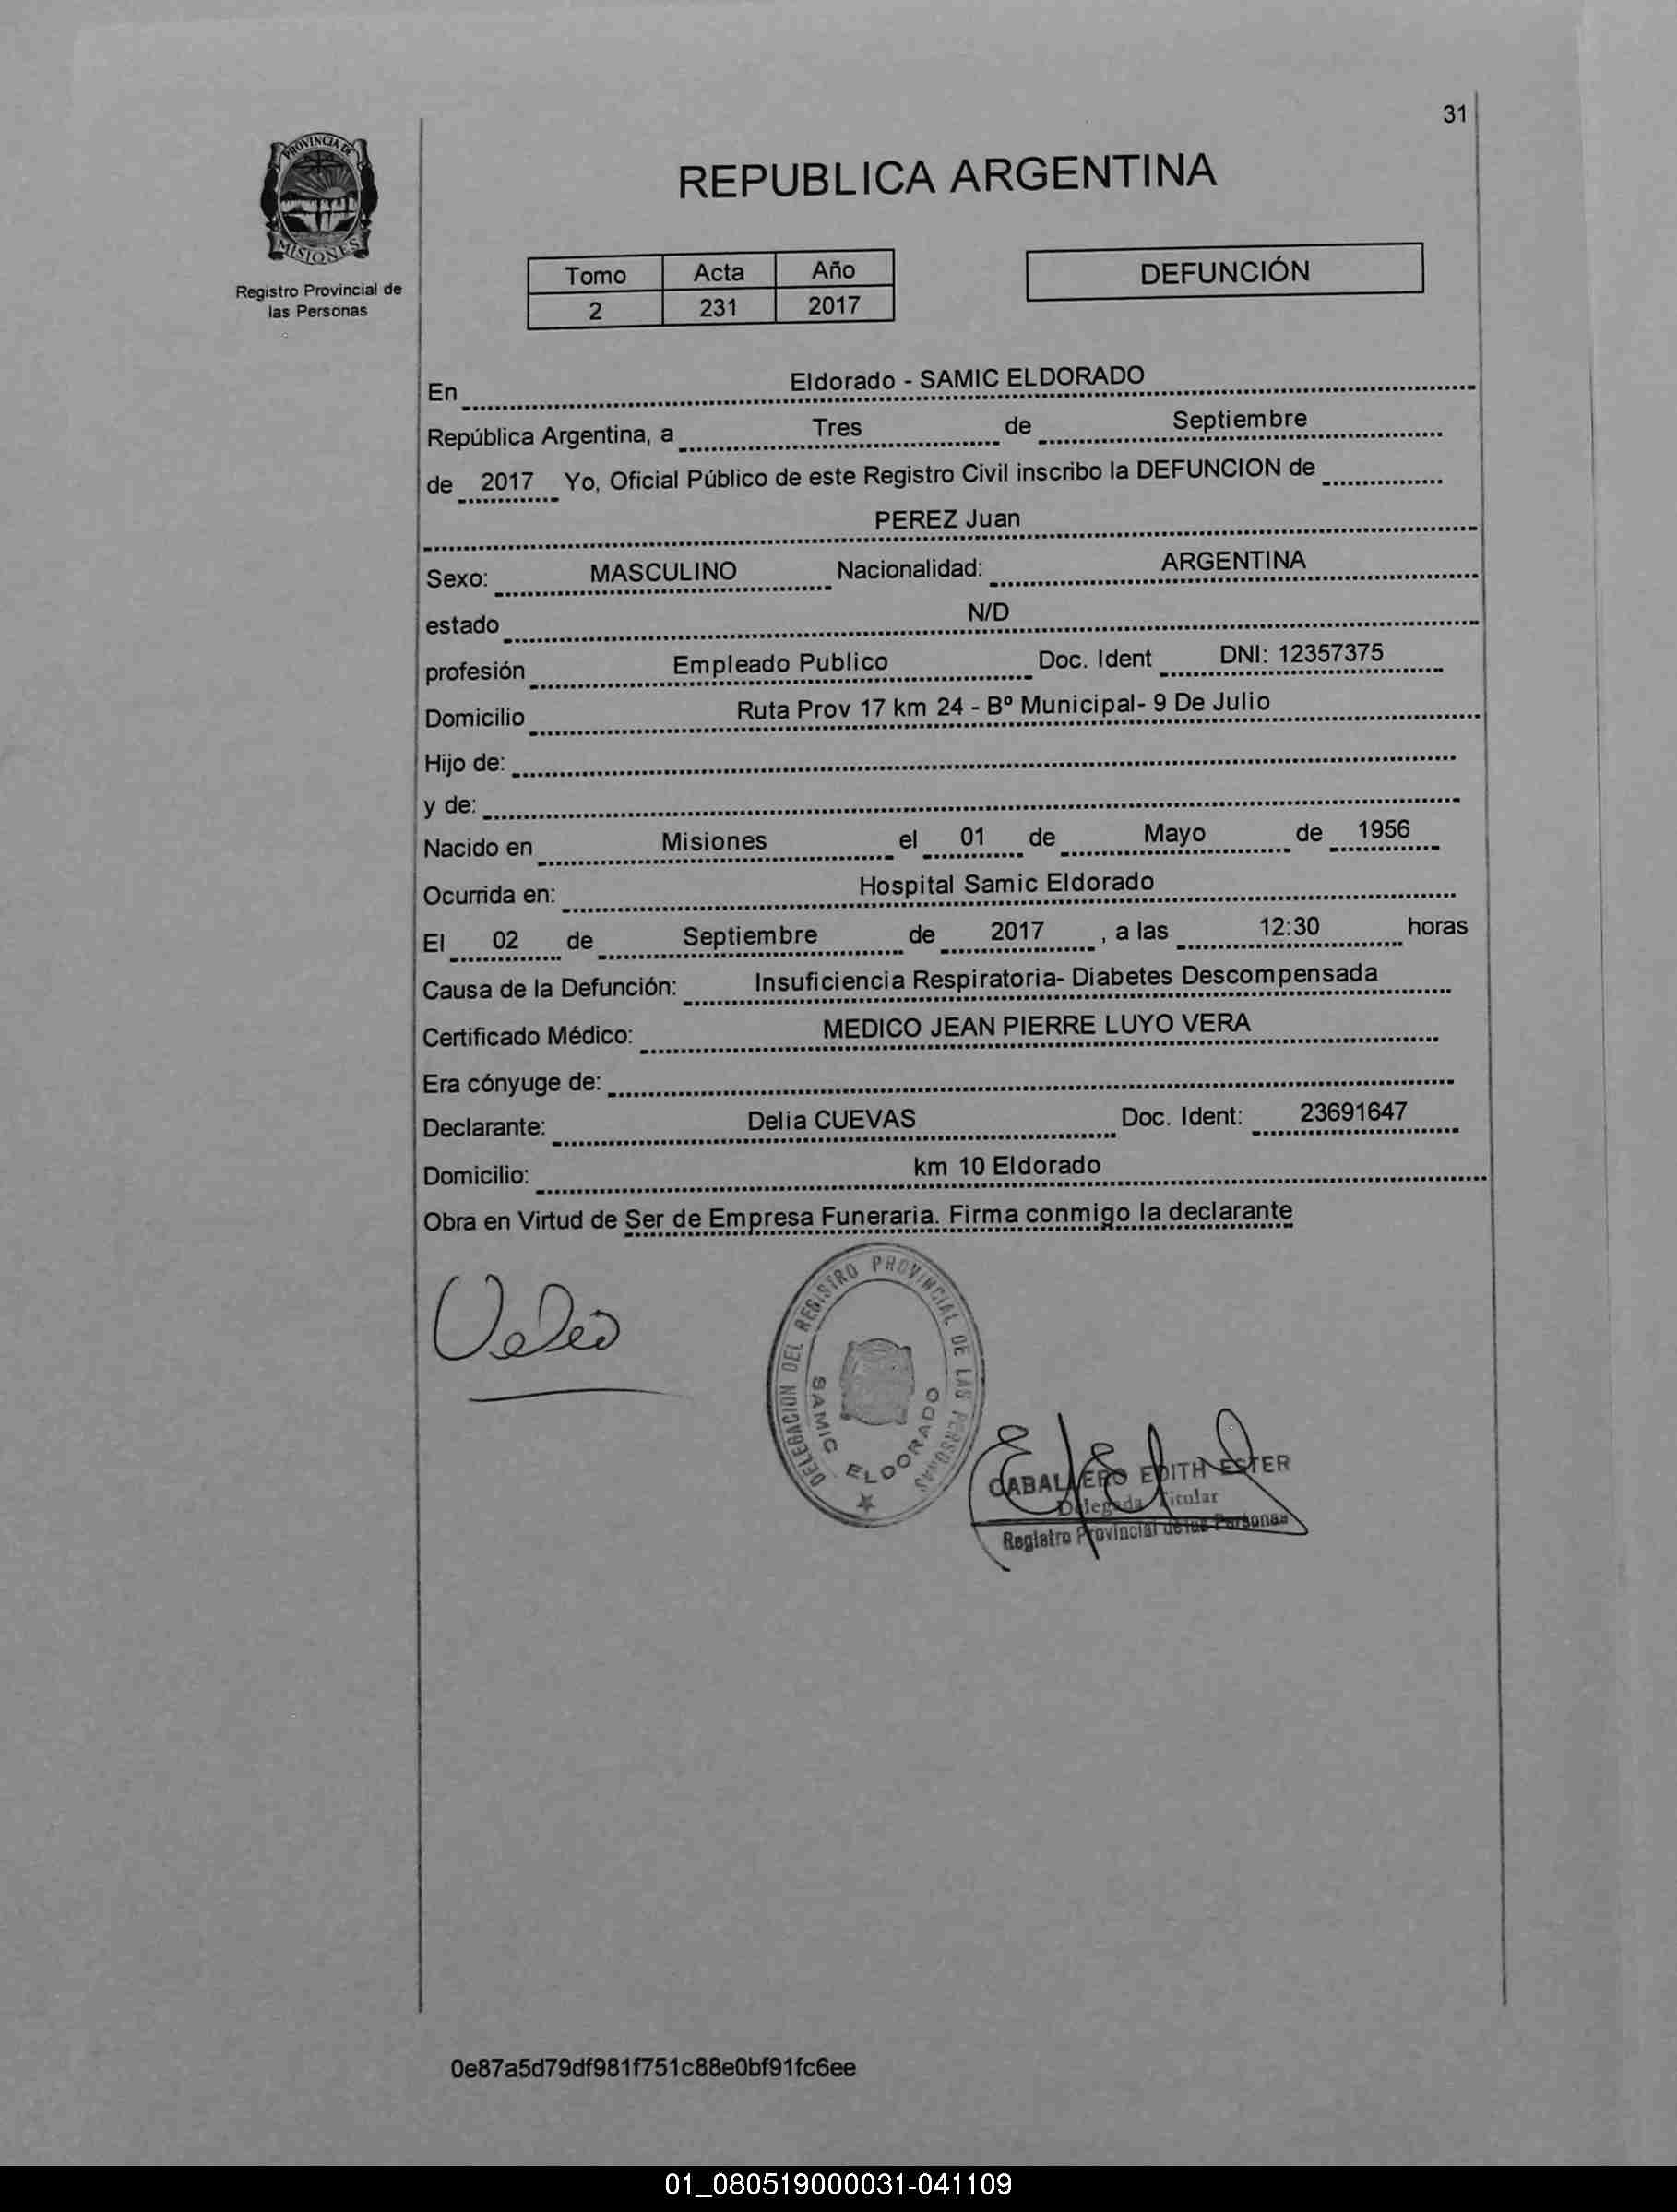 31
PROVINCIA DE
MISIONES
Registro Provincial de
las Personas
REPUBLICA ARGENTINA
Tomo Acta Año
2 231 2017
DEFUNCIÓN
En Eldorado - SAMIC ELDORADO
República Argentina, a Tres de Septiembre
de 2017 Yo, Oficial Público de este Registro Civil inscribo la DEFUNCION de
PEREZ Juan
Sexo: MASCULINO Nacionalidad: ARGENTINA
estado N/D
profesión Empleado Publico Doc. Ident DNI: 12357375
Domicilio Ruta Prov 17 km 24 - Bº Municipal- 9 De Julio
Hijo de:
y de:
Nacido en Misiones el 01 de Mayo de 1956
Ocurrida en: Hospital Samic Eldorado
El 02 de Septiembre de 2017 , a las 12:30 horas
Causa de la Defunción: Insuficiencia Respiratoria- Diabetes Descompensada
Certificado Médico: MEDICO JEAN PIERRE LUYO VERA
Era cónyuge de:
Declarante: Delia CUEVAS Doc. Ident: 23691647
Domicilio: km 10 Eldorado
Obra en Virtud de Ser de Empresa Funeraria. Firma conmigo la declarante
DELEGACION DEL REGISTRO PROVINCIAL DE LAS PERSONAS
SAMIC ELDORADO
CABALLERO EDITH ESTER
Delegada Titular
Registro Provincial de las Personas
0e87a5d79df981f751c88e0bf91fc6ee
01_080519000031-041109